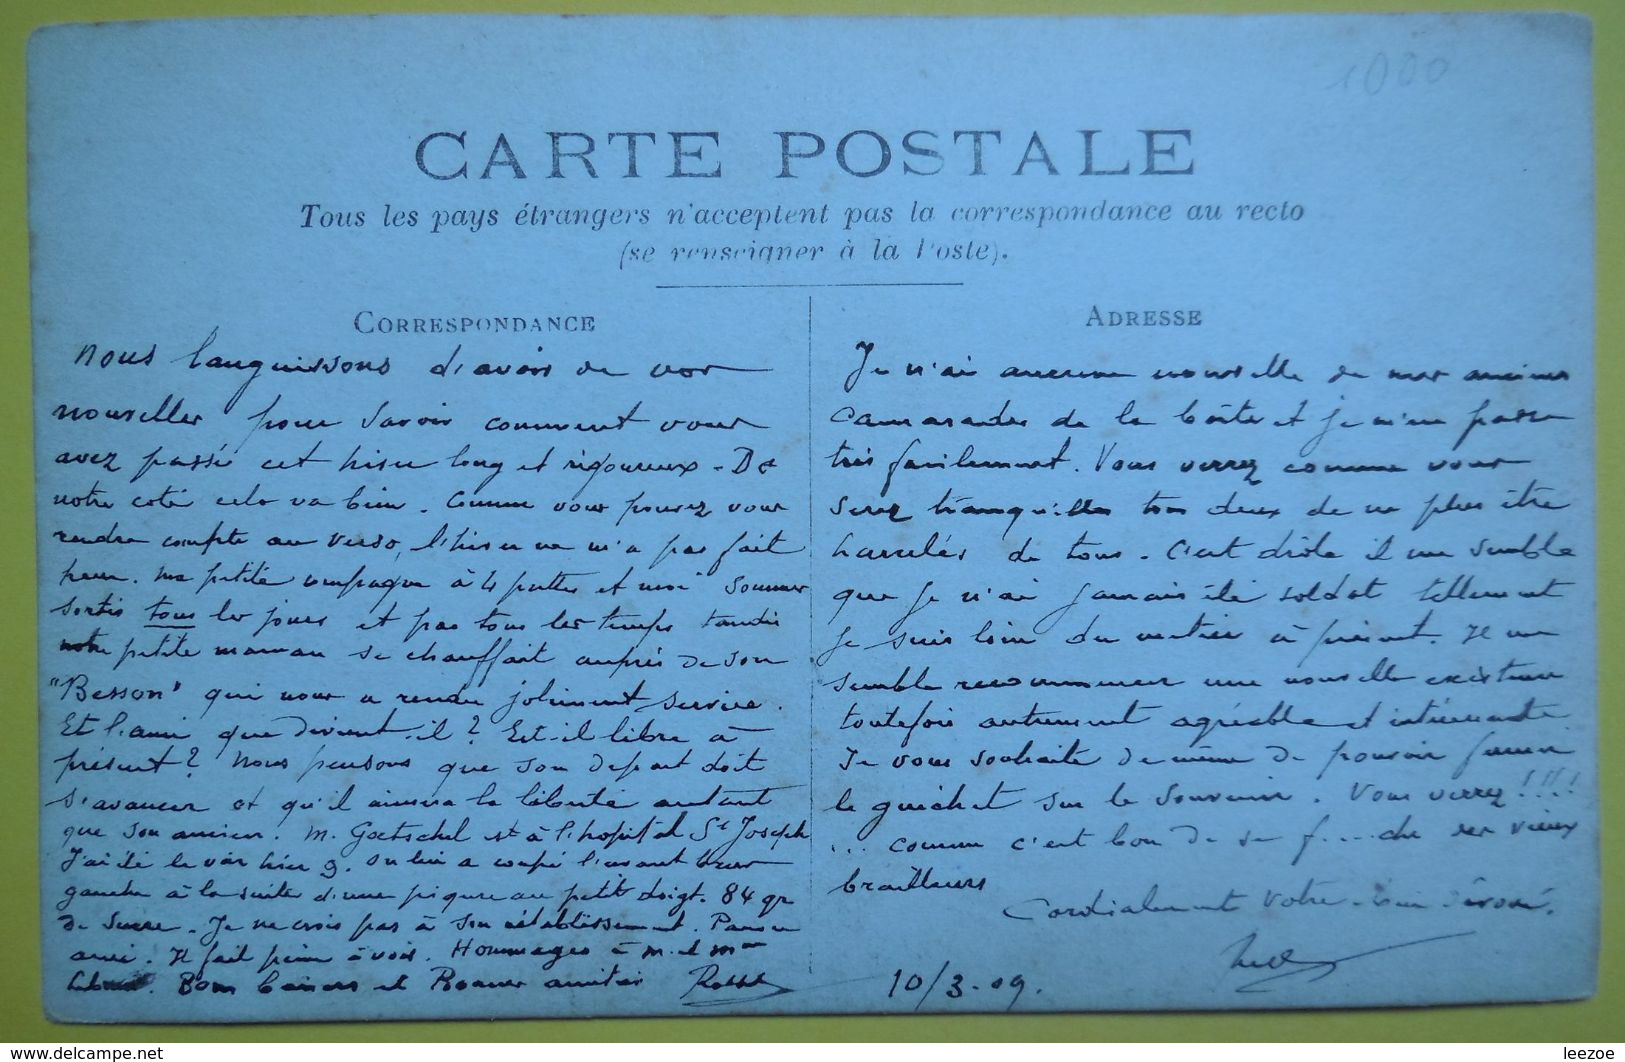 1000
CARTE POSTALE
Tous les pays étrangers n'acceptent pas la correspondance au recto
(se renseigner à la Poste).
CORRESPONDANCE
Nous languissons d'avoir de vos
nouvelles pour savoir comment vous
avez passé cet hiver long et rigoureux. De
notre coté cela va bien. Comme vous pouvez vous
rendre compte au verso, l'hiver ne m'a pas fait
peur. Ma petite compagne à 4 pattes et moi sommes
sortis tous les jours et par tous les temps tandis
notre petite maman se chauffait auprès de son
"Besson" qui nous a rendu joliment service.
Et l'ami que devient-il? Est-il libre à
présent? Nous pensons que son départ doit
s'avancer et qu'il aimera la liberté autant
que son ancien. M. Goetschel est à l'hopital St Joseph
J'ai été le voir hier 9. On lui a coupé l'avant bras
gauche à la suite d'une piqure au petit doigt. 84 gr
de sucre. Je ne crois pas à son rétablissement. Pauvre
ami. Il fait peine à voir. Hommages à M. et Mme
Bons baisers et Bonnes amitiés
ADRESSE
Je n'ai aucune nouvelle de mes anciens
camarades de la boîte et je m'en passe
très facilement. Vous verrez comme vous
serez tranquilles tous deux de ne plus être
harcelés de tous. C'est drôle il me semble
que je n'ai jamais été soldat tellement
je suis loin du métier à présent. Il me
semble recommencer une nouvelle existence
toutefois autrement agréable et intéressante
Je vous souhaite de même de pouvoir fermer
le guichet sur le souvenir. Vous verrez!!!!
... comme c'est bon de se f....che des vieux
brailleurs
Cordialement votre dévoué.
10/3-09.
leezoe
www.delcampe.net